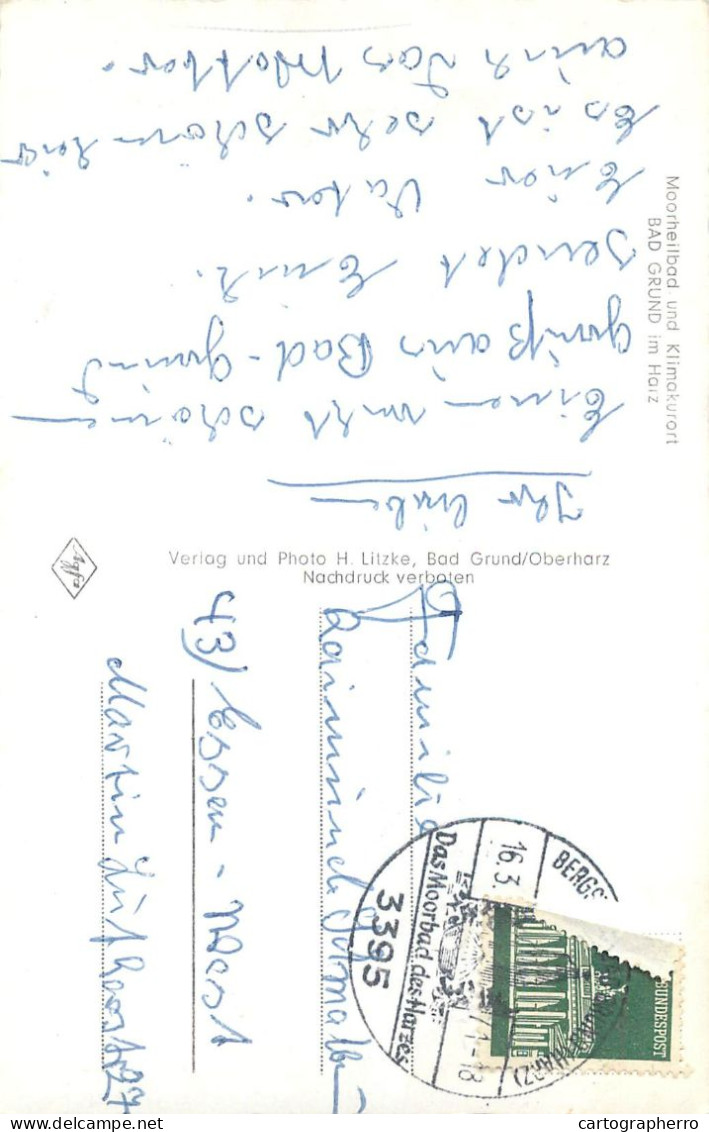 Moorheilbad und Klimakurort
BAD GRUND im Harz
Ihr Lieben
Einen recht schönen
Gruß aus Bad-Grund
sendet Euch
Euer Vater.
Es ist sehr schön hier
auch das Wetter.
Verlag und Photo H. Litzke, Bad Grund/Oberharz
Nachdruck verboten
Agfa
Familie
43) Essen-West
Martin Luther str 27
BERGS
16.3.
Das Moorbad des Harzes
3395
-18
HARZ)
BUNDESPOST
cartographerro